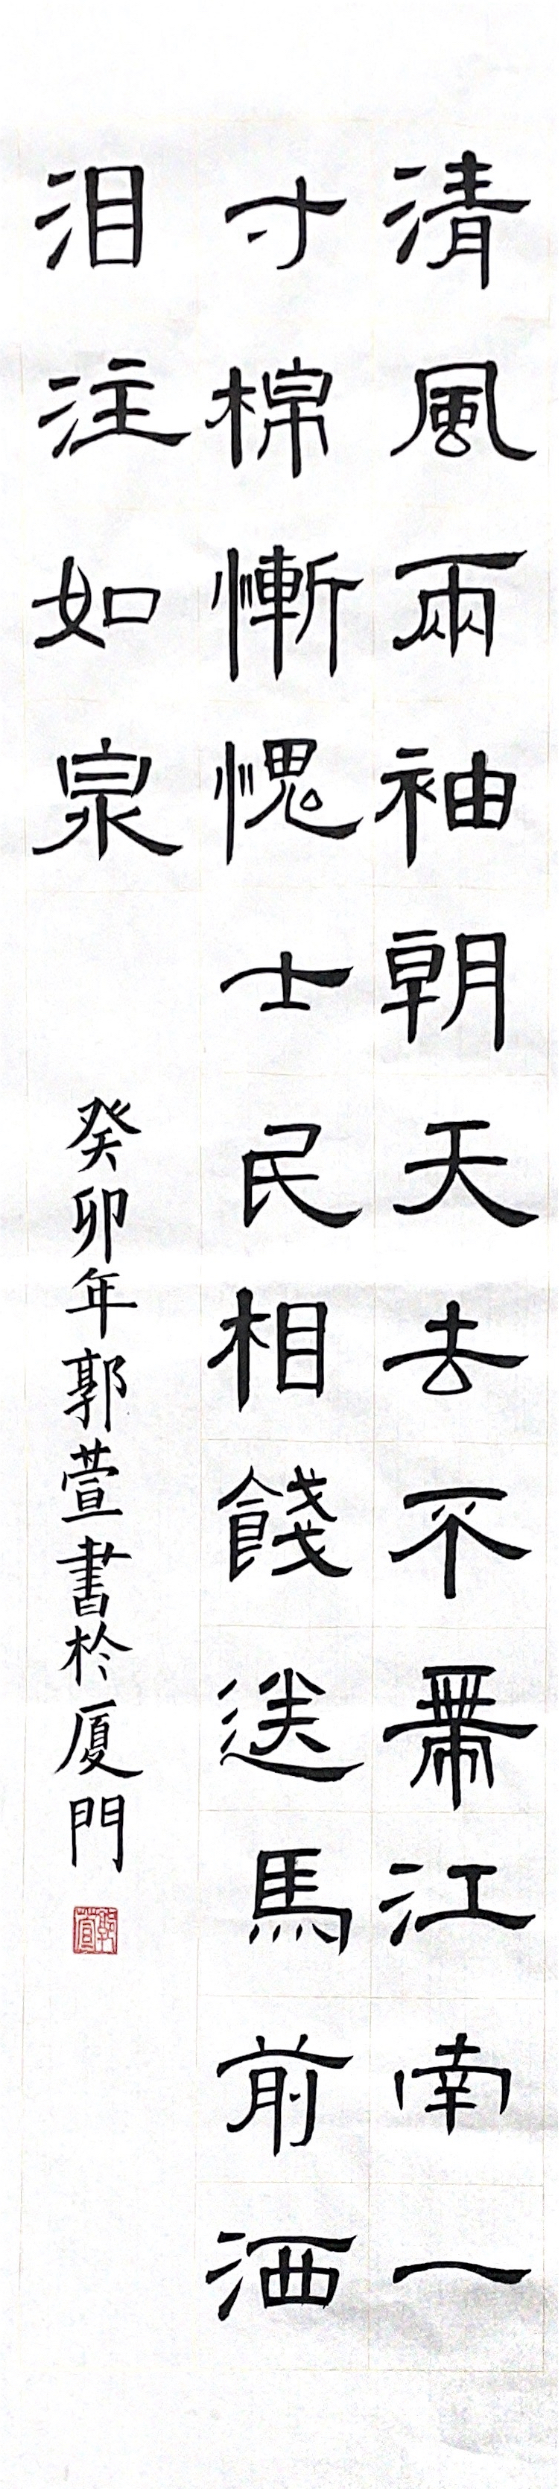 清風兩袖朝天去不帶江南一
寸棉慚愧士民相餞送馬前洒
泪注如泉
癸卯年郭萱書於厦門
郭萱